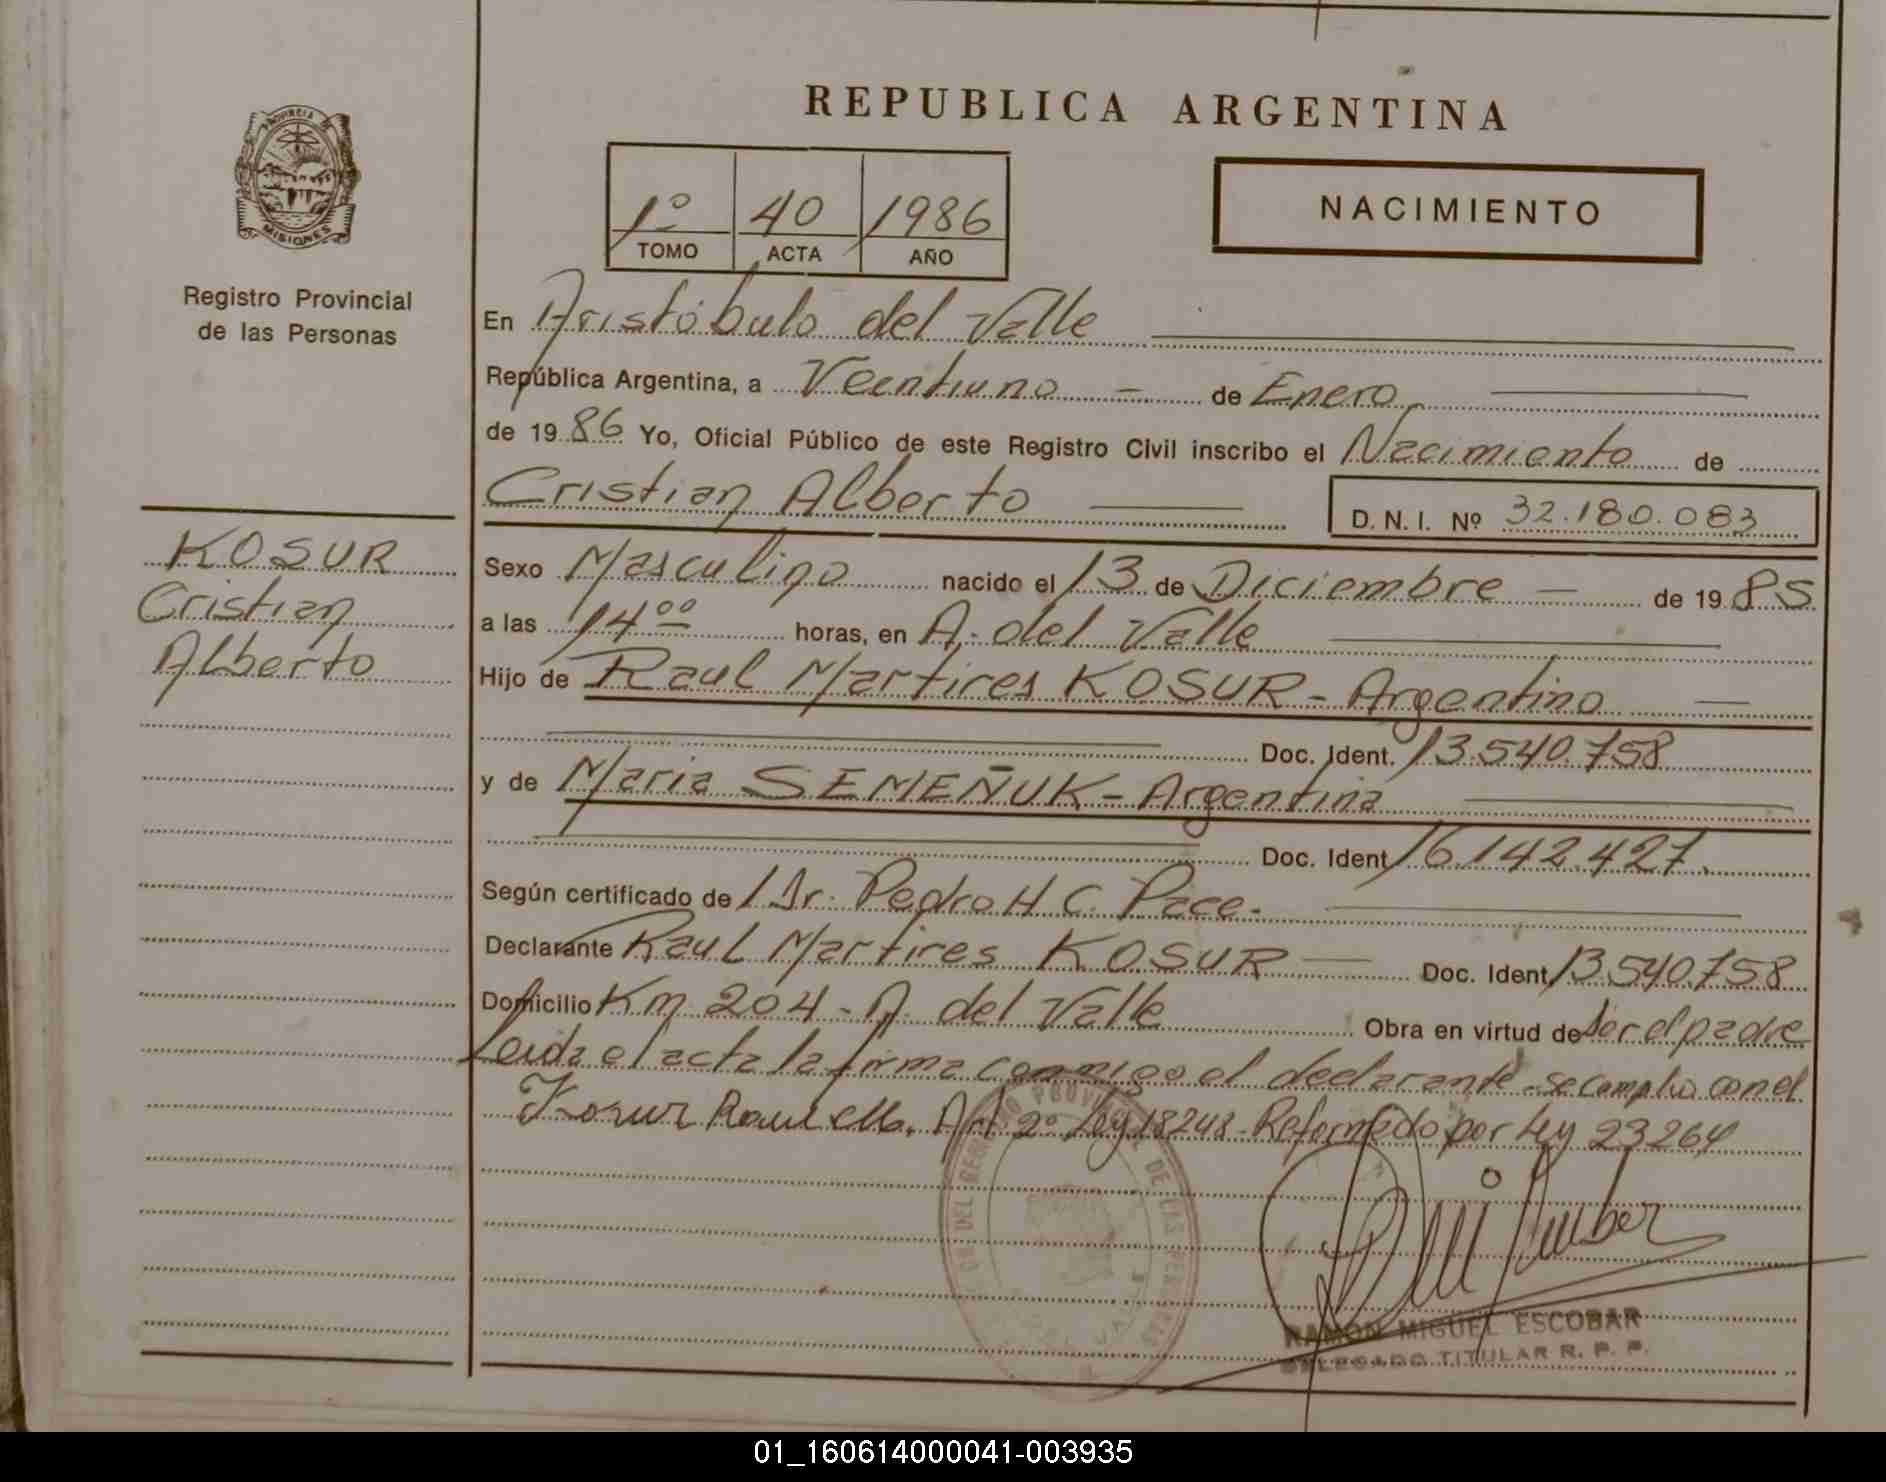 REPUBLICA ARGENTINA
PROVINCIA
MISIONES
Registro Provincial
de las Personas
1º 40 1986
TOMO ACTA AÑO
NACIMIENTO
En Aristóbulo del Valle
República Argentina, a Veintiuno - de Enero
de 1986 Yo, Oficial Público de este Registro Civil inscribo el Nacimiento de
Cristian Alberto D. N. I. Nº 32.180.083
KOSUR
Cristian
Alberto
Sexo Masculino nacido el 13 de Diciembre - de 1985
a las 14ºº horas, en A. del Valle
Hijo de Raul Martires KOSUR - Argentino
Doc. Ident. 13.540.758
y de Maria SEMEÑUK - Argentina
Doc. Ident 16.142.427.
Según certificado de / Dr. Pedro H. C. Pace.
Declarante Raul Martires KOSUR - Doc. Ident. 13.540.758
Domicilio Km 204 - A. del Valle Obra en virtud de ser el padre
Leida el acta la firma conmigo el declarante - se complio con el
Kosur Raul M. Art 2º Ley 18248 - Reformado por Ley 23264
RAMON MIGUEL ESCOBAR
DELEGADO TITULAR R. P. P.
01_160614000041-003935